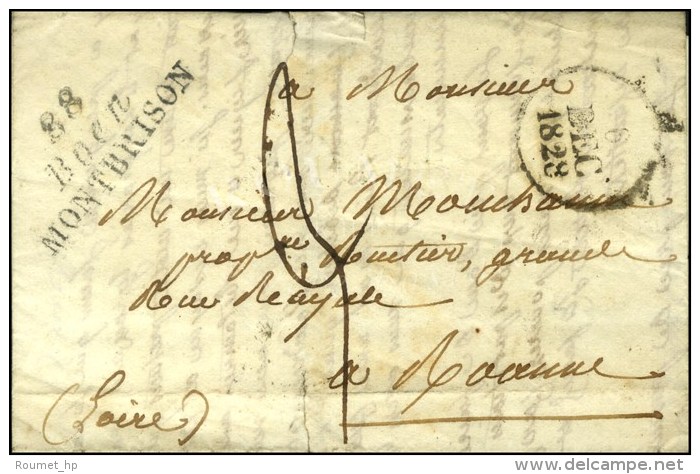 88
Boen
MONTBRISON
6
DEC
1828
à Monsieur
Monsieur
propre Rentier, grande
Rue Royale
à Roanne
(Loire)
Roumet_hp
www.delcampe.net